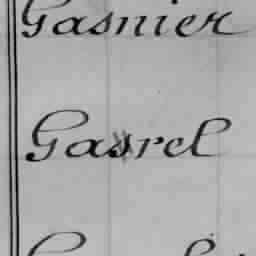 Gasnier
Gasrel